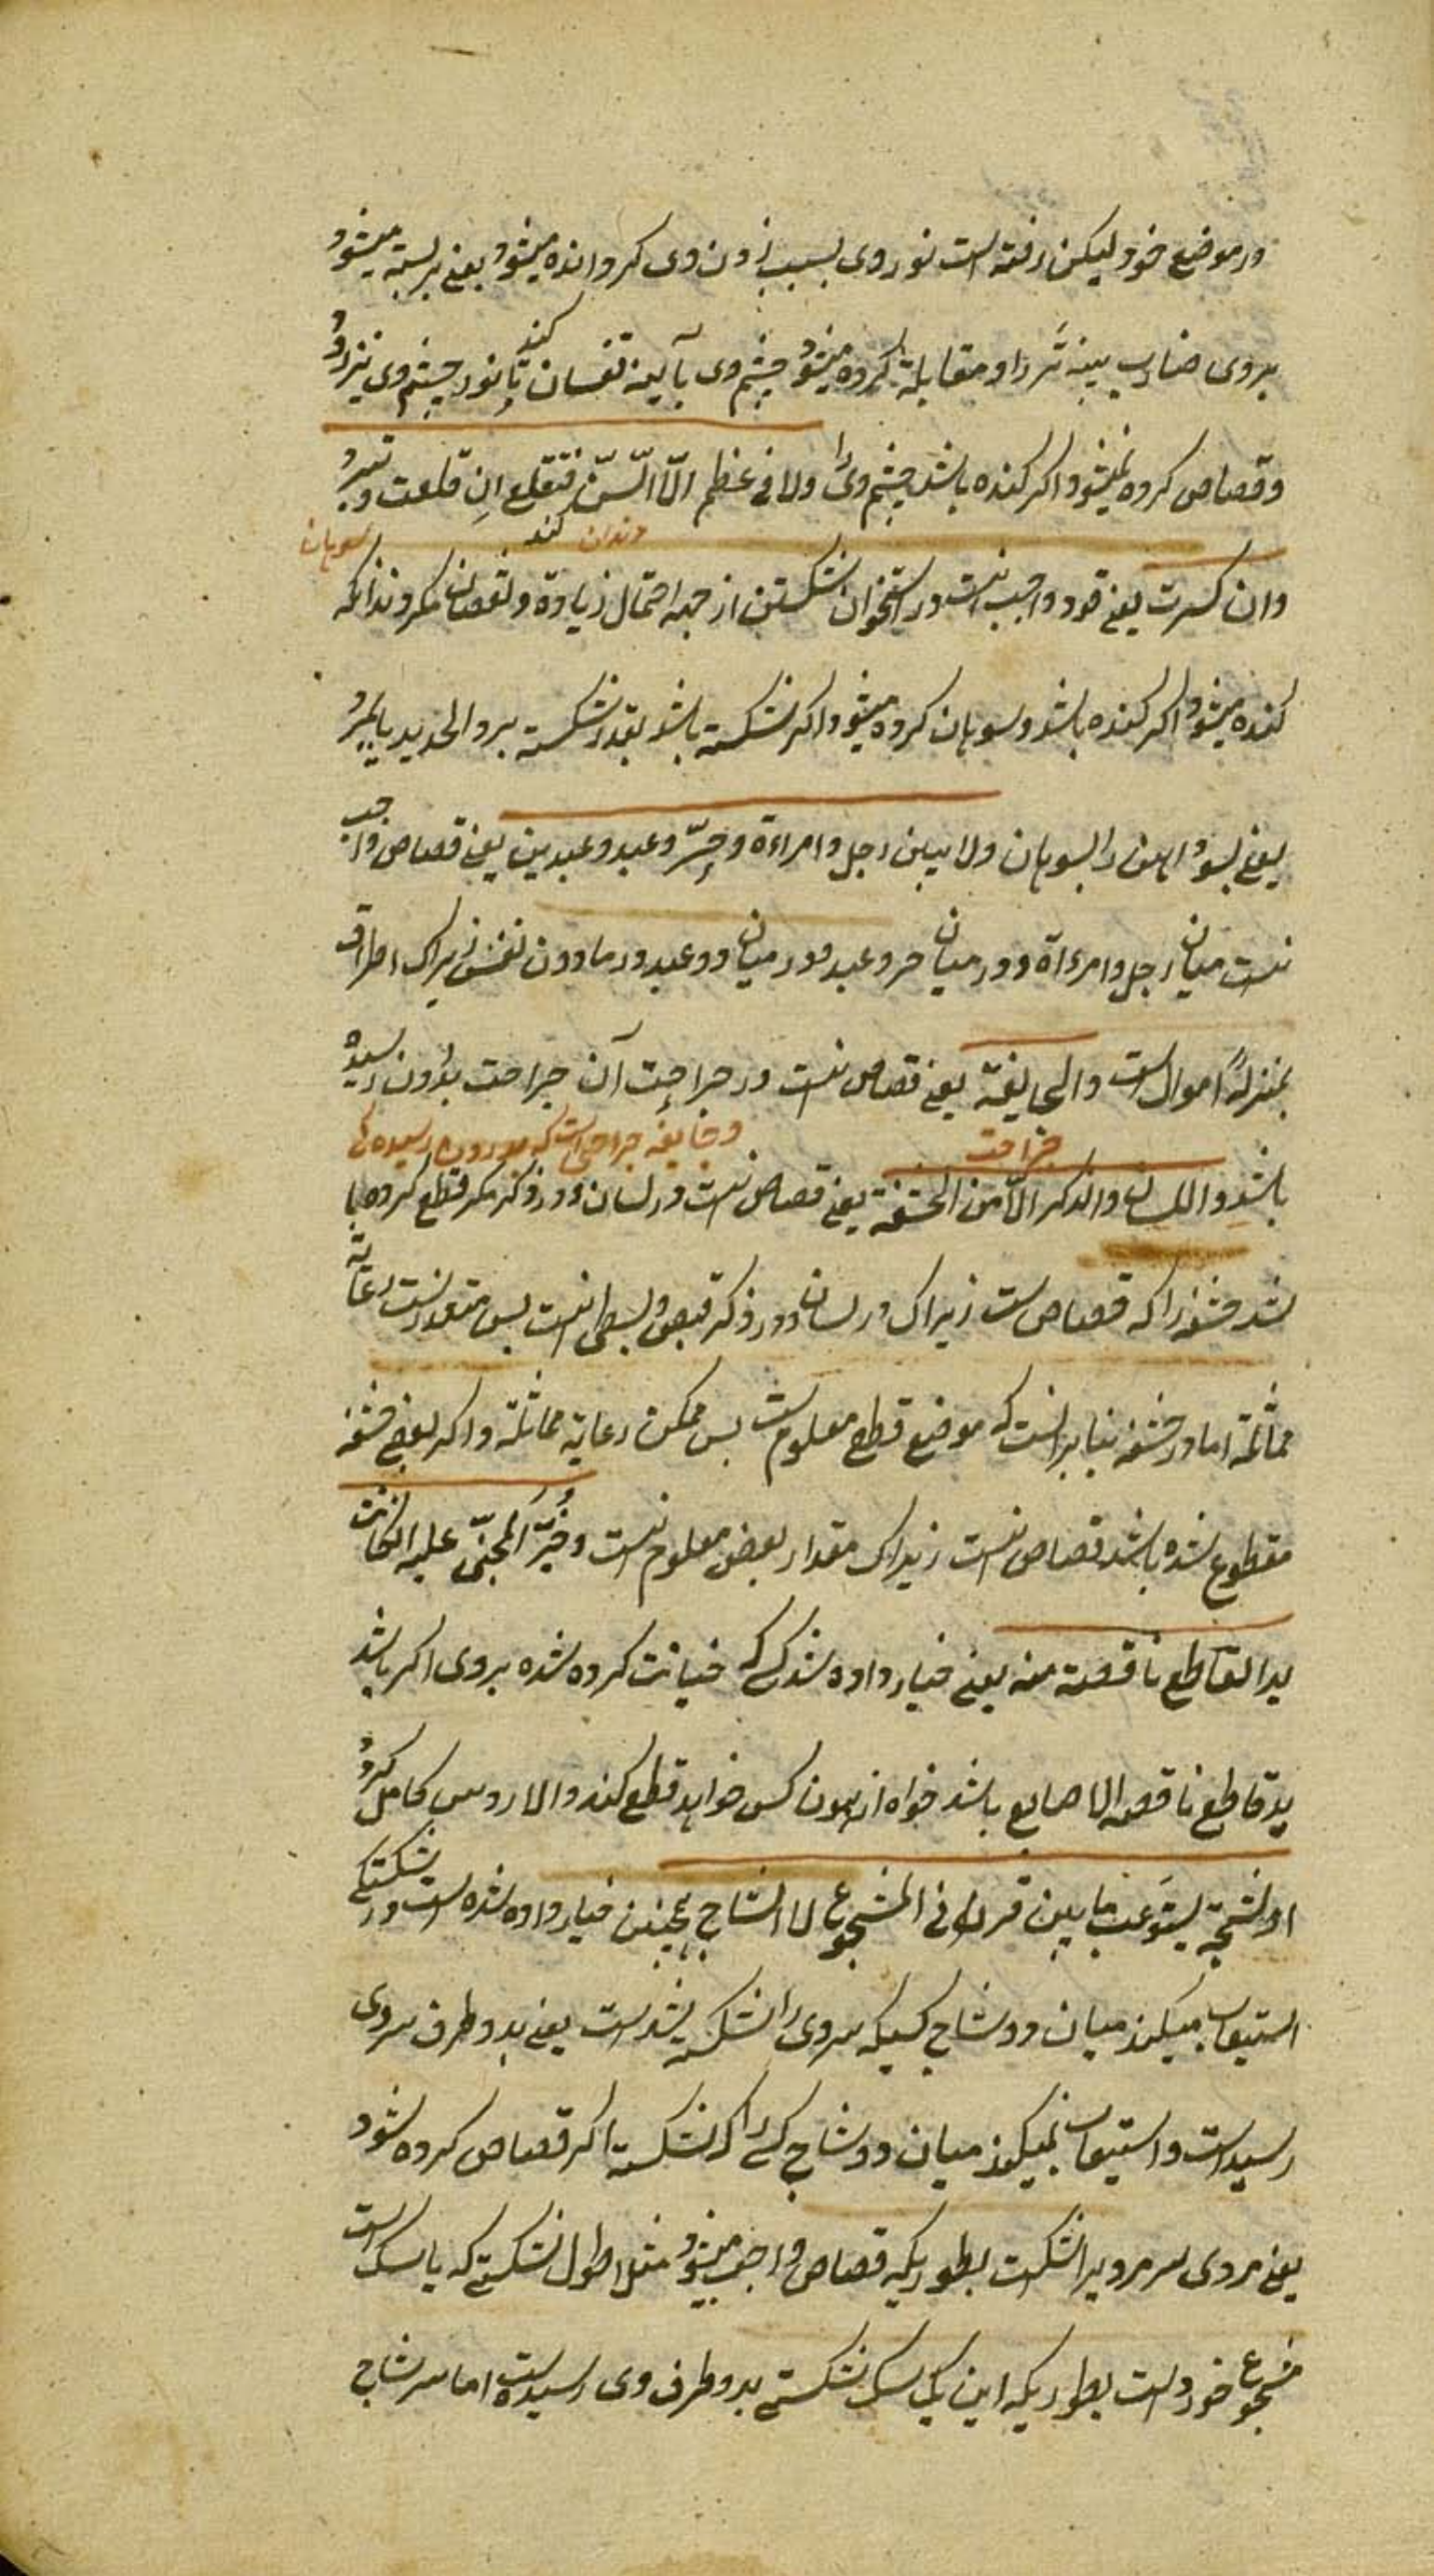 در موضع خود لیکن رفته است نور وی بسبب زدن وی کروانده میشود یعنی بربسته میشود
بروی ضارب پنبه تر را و مقابله کرده میشود چشم وی بآیینه تفسان کند تا نور چشم وی نیز رود
وقصاص کرده نمیشود اکر کنده باشد چشم ویرا ولا فی عظم الّا السّنّ فتقلع انِ قلعت و تبرد
دندان کند سوهان
وان کسرت یعنی قود واجب نیست در استخوان شکستن از جهه احتمال زیادة ونقصان مکر دندانکه
کنده میشود اکر کنده باشد وسوهان کرده میشود اکر شکسته باشد بقدر شکسته برد الحدید بالمبرد
یعنی بسود آهن را بسوهان ولا بین رجل وامراءة وحرّ وعبد وعبدین یعنی قصاص واجب
نیست میان رجل وامرءآة ودر میان حر وعبد ودر میان دو عبد در مادون نفس زیراک اطراف
بمنزلهٔ اموال است والجایفة یعنی قصاص نیست در جراحت آن جراحت بدرون رسیده
جراحت وجایفه جراحتی است که بدرون رسیده
باشد واللسان والذکر الّا من الحشفة یعنی قصاص نیست در لسان ودر ذکر مکر قطع کرده
شد حشفه را که قصاص ست زیراک در لسان ودر ذکر قبض وبسط است پس متعذرست رعایة
مماثلة اما در حشفه بنابر آنست که موضع قطع معلوم ست پس ممکن رعایة مماثلة واکر بعضی حشفه
مقطوع شده باشد قصاص نیست زیراک مقدار بعض معلوم نیست وخُیّرَ المجنیّ علیه ان کانت
ید القاطع ناقصة منه یعنی خیار داده شد کسی که خیانت کرده شده بروی اکر باشد
ید قاطع ناقصه الاصابع باشد خواه از همون کس خواهد قطع کند والا ارش کامل کیرد
او الشجّة یستوعب ما بین قرنی المشجوع لا الشاج همچنین خیار داده شده است در شکستکی
استیعاب میکند میان دو شاخ کسیکه سر ویرا شکسته شدست یعنی بدو طرف سر وی
رسیداست واستیعاب نمیکند میان دو شاخ کسی را که شکسته اکر قصاص کرده شود
یعنی مردی سر مردیرا شکست بطوریکه قصاص واجب میشود مثلا طول شکستی که یاسک است
مشجوع خورد است بطوریکه این یک سک شکستی بدو طرف وی رسیدست اما سر شاج